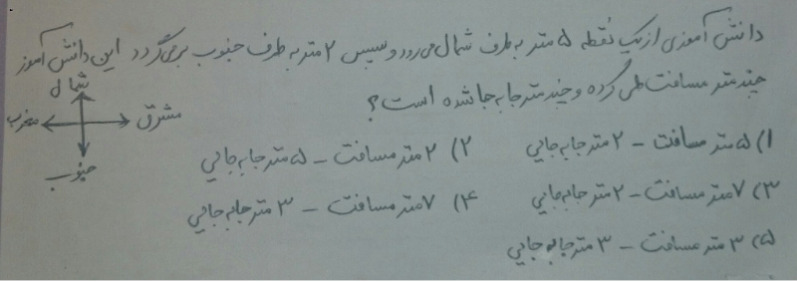 دانش آموزی از یک نقطه ۵ متر به طرف شمال می رود و سپس ۲ متر به طرف جنوب برمی گردد این دانش آموز
چند متر مسافت طی کرده و چند متر جابه جا شده است؟
شمال
مشرق
مغرب
جنوب
۱) ۵ متر مسافت - ۲ متر جابه جایی
۲) ۲ متر مسافت - ۵ متر جابه جایی
۳) ۷ متر مسافت - ۲ متر جابه جایی
۴) ۷ متر مسافت - ۳ متر جابه جایی
۵) ۳ متر مسافت - ۳ متر جابه جایی